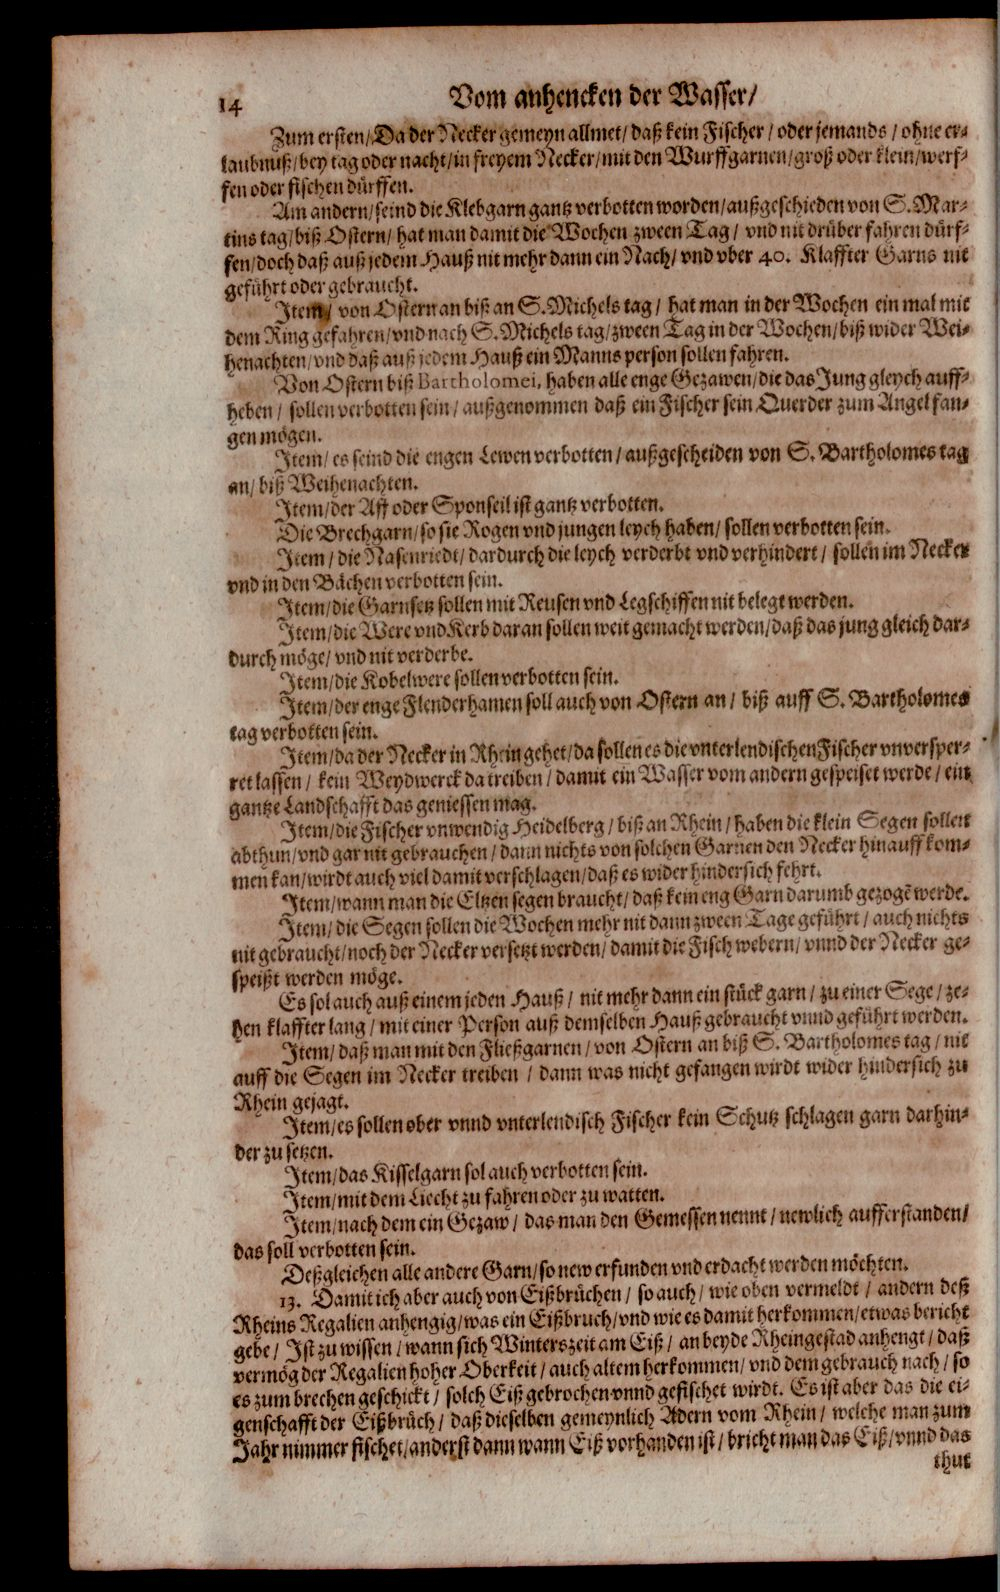 14 Vom anhencken der Wasser/
Zum ersten/ Da der Necker gemeyn allmet/ daß kein Fischer/ oder jemands/ ohne er-
laubnuß/ bey tag oder nacht/ in freyem Necker/ mit den Wurffgarnen/ groß oder klein/ werf-
fen oder fischen dürffen.
Am andern/ seind die Klebgarn gantz verbotten worden/ außgeschieden von S. Mar-
tins tag/ biß Ostern/ hat man damit die Wochen zween Tag/ vnd nit drüber fahren dürf-
fen/ doch daß auß jedem Hauß nit mehr dann ein Nach/ vnd vber 40. Klaffter Garns nit
geführt oder gebraucht.
Item/ von Ostern an biß an S. Michels tag/ hat man in der Wochen ein mal mit
dem Ring gefahren/ vnd nach S. Michels tag/ zween Tag in der Wochen/ biß wider Wei-
henachten/ vnd daß auß jedem Hauß ein Manns person sollen fahren.
Von Ostern biß Bartholomei, haben alle enge Gezawen/ die das Jung gleych auff-
heben/ sollen verbotten sein/ außgenommen daß ein Fischer sein Querder zum Angel fan-
gen mögen.
Item/ es seind die engen Lewen verbotten/ außgescheiden von S. Bartholomes tag
an/ biß Weihenachten.
Item/ der Aff oder Sponseil ist gantz verbotten.
Die Brechgarn/ so sie Rogen vnd jungen leych haben/ sollen verbotten sein.
Item/ die Nasenriedt/ dardurch die leych verderbt vnd verhindert/ sollen im Necker
vnd in den Bächen verbotten sein.
Item/ die Garnsetz sollen mit Reusen vnd Legschiffen nit belegt werden.
Item/ die Were vnd Kerb daran sollen weit gemacht werden/ daß das jung gleich dar-
durch möge/ vnd nit verderbe.
Item/ die Kobelwere sollen verbotten sein.
Item/ der enge Flenderhamen soll auch von Ostern an/ biß auff S. Bartholomes
tag verbotten sein.
Item/ da der Necker in Rhein gehet/ da sollen es die vnterlendischen Fischer vnversper-
ret lassen/ kein Weydwerck da treiben/ damit ein Wasser vom andern gespeiset werde/ ein
gantze Landschafft das geniessen mag.
Item/ die Fischer vnwendig Heidelberg/ biß an Rhein/ haben die klein Segen sollen
abthun/ vnd gar nit gebrauchen/ dann nichts von solchen Garnen den Necker hinauff kom-
men kan/ wirdt auch viel damit verschlagen/ daß es wider hindersich fehrt.
Item/ wann man die Eltzen segen braucht/ daß kein eng Garn darumb gezogẽ werde.
Item/ die Segen sollen die Wochen mehr nit dann zween Tage geführt/ auch nichts
nit gebraucht/ noch der Necker versetzt werden/ damit die Fisch webern/ vnnd der Necker ge-
speißt werden möge.
Es sol auch auß einem jeden Hauß/ nit mehr dann ein stück garn/ zu einer Sege/ ze-
hen klaffter lang/ mit einer Person auß demselben Hauß gebraucht vnnd geführt werden.
Item/ daß man mit den Fließgarnen/ von Ostern an biß S. Bartholomes tag/ nit
auff die Segen im Necker treiben/ dann was nicht gefangen wirdt wider hindersich zu
Rhein gejagt.
Item/ es sollen ober vnnd vnterlendisch Fischer kein Schutz schlagen garn darhin-
der zu setzen.
Item/ das Kisselgarn sol auch verbotten sein.
Item/ mit dem Liecht zu fahren oder zu watten.
Item/ nach dem ein Gezaw/ das man den Gemessen nennt/ newlich aufferstanden/
das soll verbotten sein.
Deßgleichen alle andere Garn/ so new erfunden vnd erdacht werden möchten.
13. Damit ich aber auch von Eißbrüchen/ so auch/ wie oben vermeldt/ andern deß
Rheins Regalien anhengig/ was ein Eißbruch/ vnd wie es damit herkommen/ etwas bericht
gebe/ Ist zu wissen/ wann sich Winterszeit am Eiß/ an beyde Rheingestad anhengt/ daß
vermög der Regalien hoher Oberkeit/ auch altem herkommen/ vnd dem gebrauch nach/ so
es zum brechen geschickt/ solch Eiß gebrochen vnnd gefischet wirdt. Es ist aber das die ei-
genschafft der Eißbrüch/ daß dieselben gemeynlich Adern vom Rhein/ welche man zum
Jahr nimmer fischet/ anderst dann wann Eiß vorhanden ist/ bricht man das Eiß/ vnnd das
thut